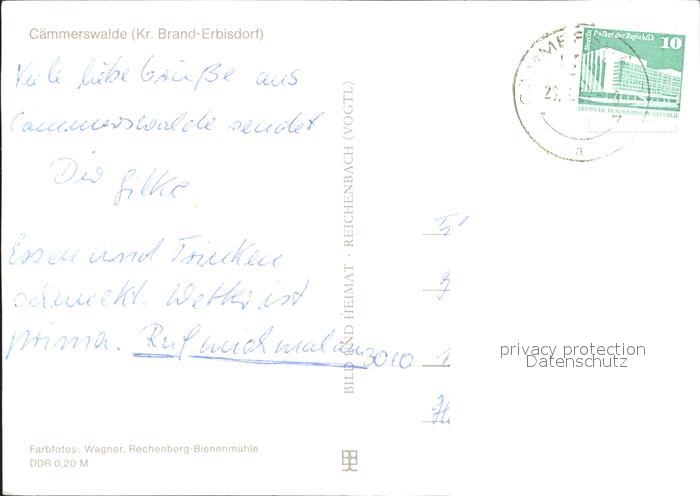 Cämmerswalde (Kr. Brand-Erbisdorf)
Viele liebe Grüße aus
Cämmerswalde sendet
Dir Silke
Essen und Trinken
schmeckt. Wetter ist
prima. Ruf mich mal an
3010
BILD UND HEIMAT · REICHENBACH (VOGTL)
Berlin Palast der Republik 10
DEUTSCHE DEMOKRATISCHE REPUBLIK
a
privacy protection
Datenschutz
Farbfotos: Wagner, Rechenberg-Bienenmühle
DDR 0,20 M